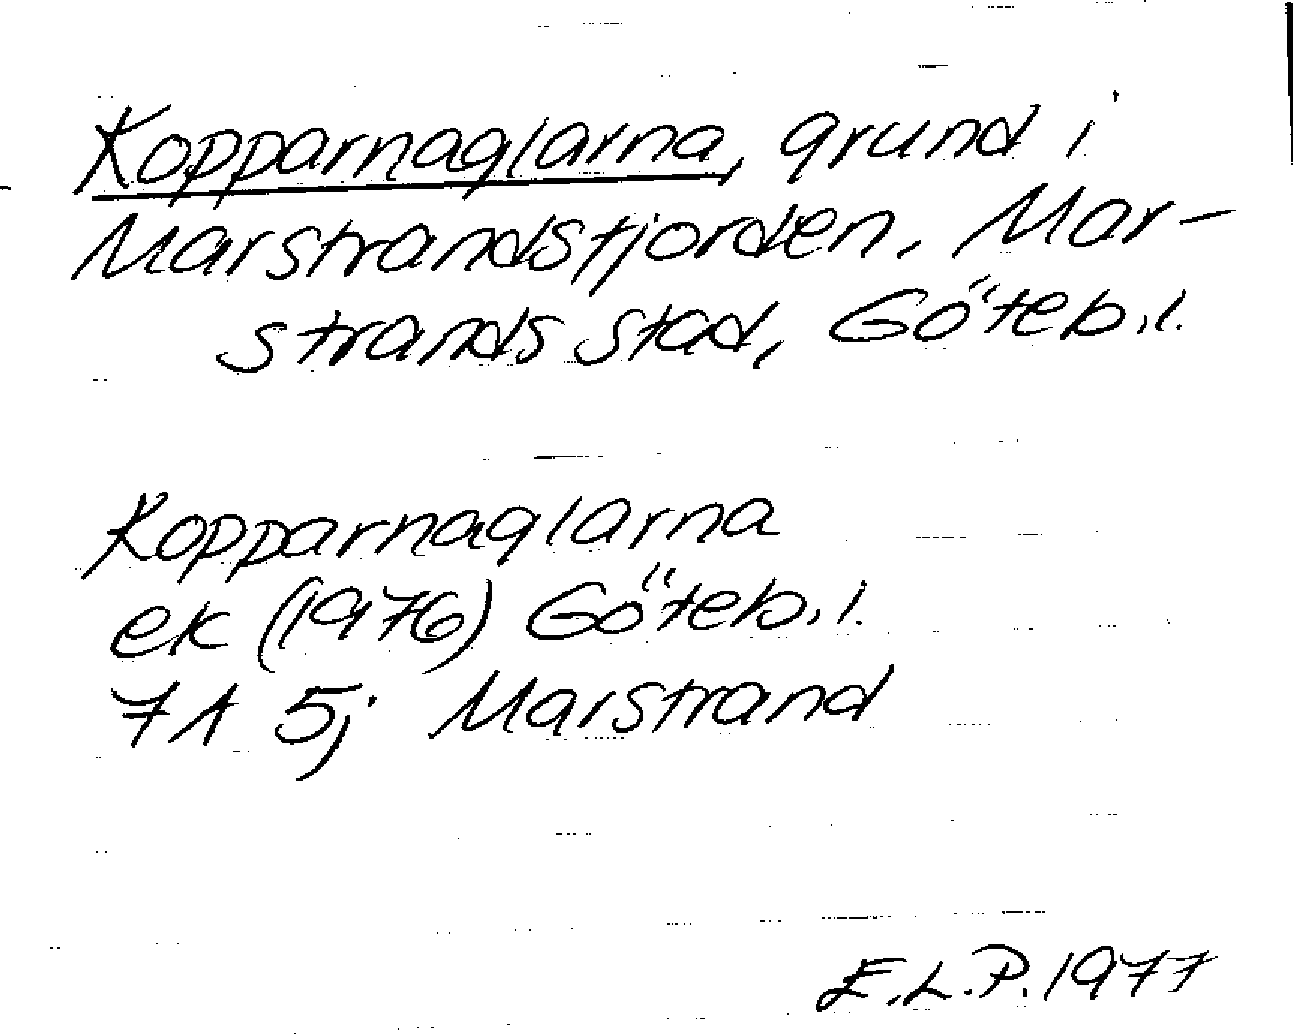 Kopparnaglarna, grund i
Marstrandsfjorden, Mar-
strands stad, Göteb.l.
Kopparnaglarna
ek (1976) Göteb.l.
7A 5j Marstrand
E.L.P. 1977